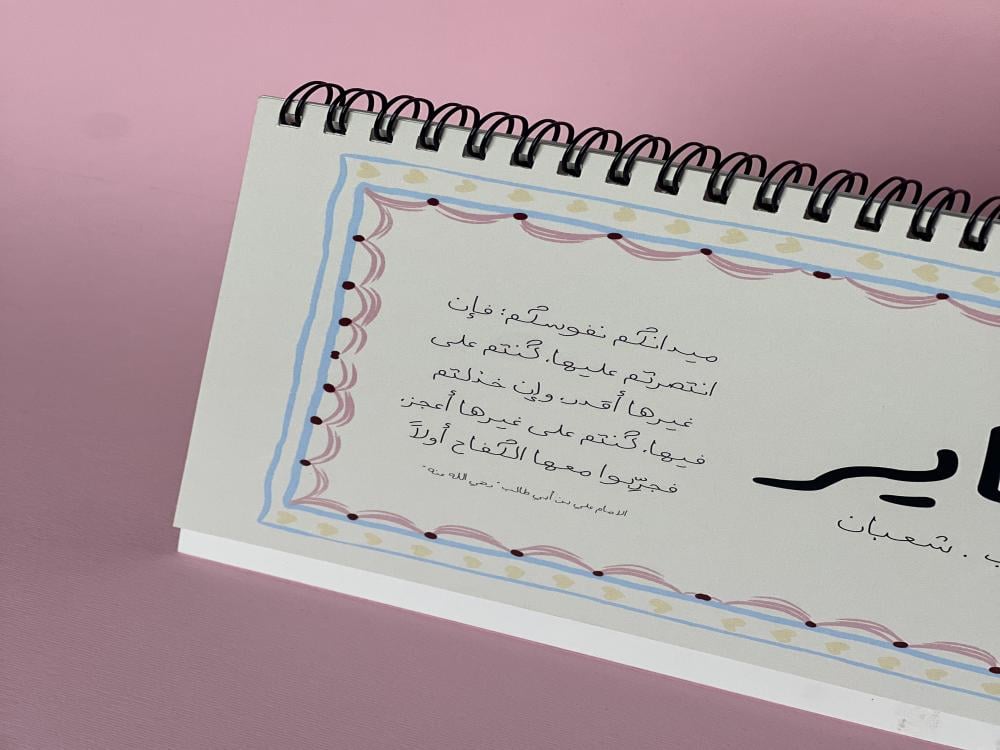 ميدانكم نفوسكم؛ فإن
انتصرتم عليها، كنتم على
غيرها أقدر، وإن خذلتم
فيها، كنتم على غيرها أعجز.
فجرّبوا معها الكفاح أولاً
"الامام علي بن أبي طالب" رضي الله عنه
ـاير
ب . شعبان